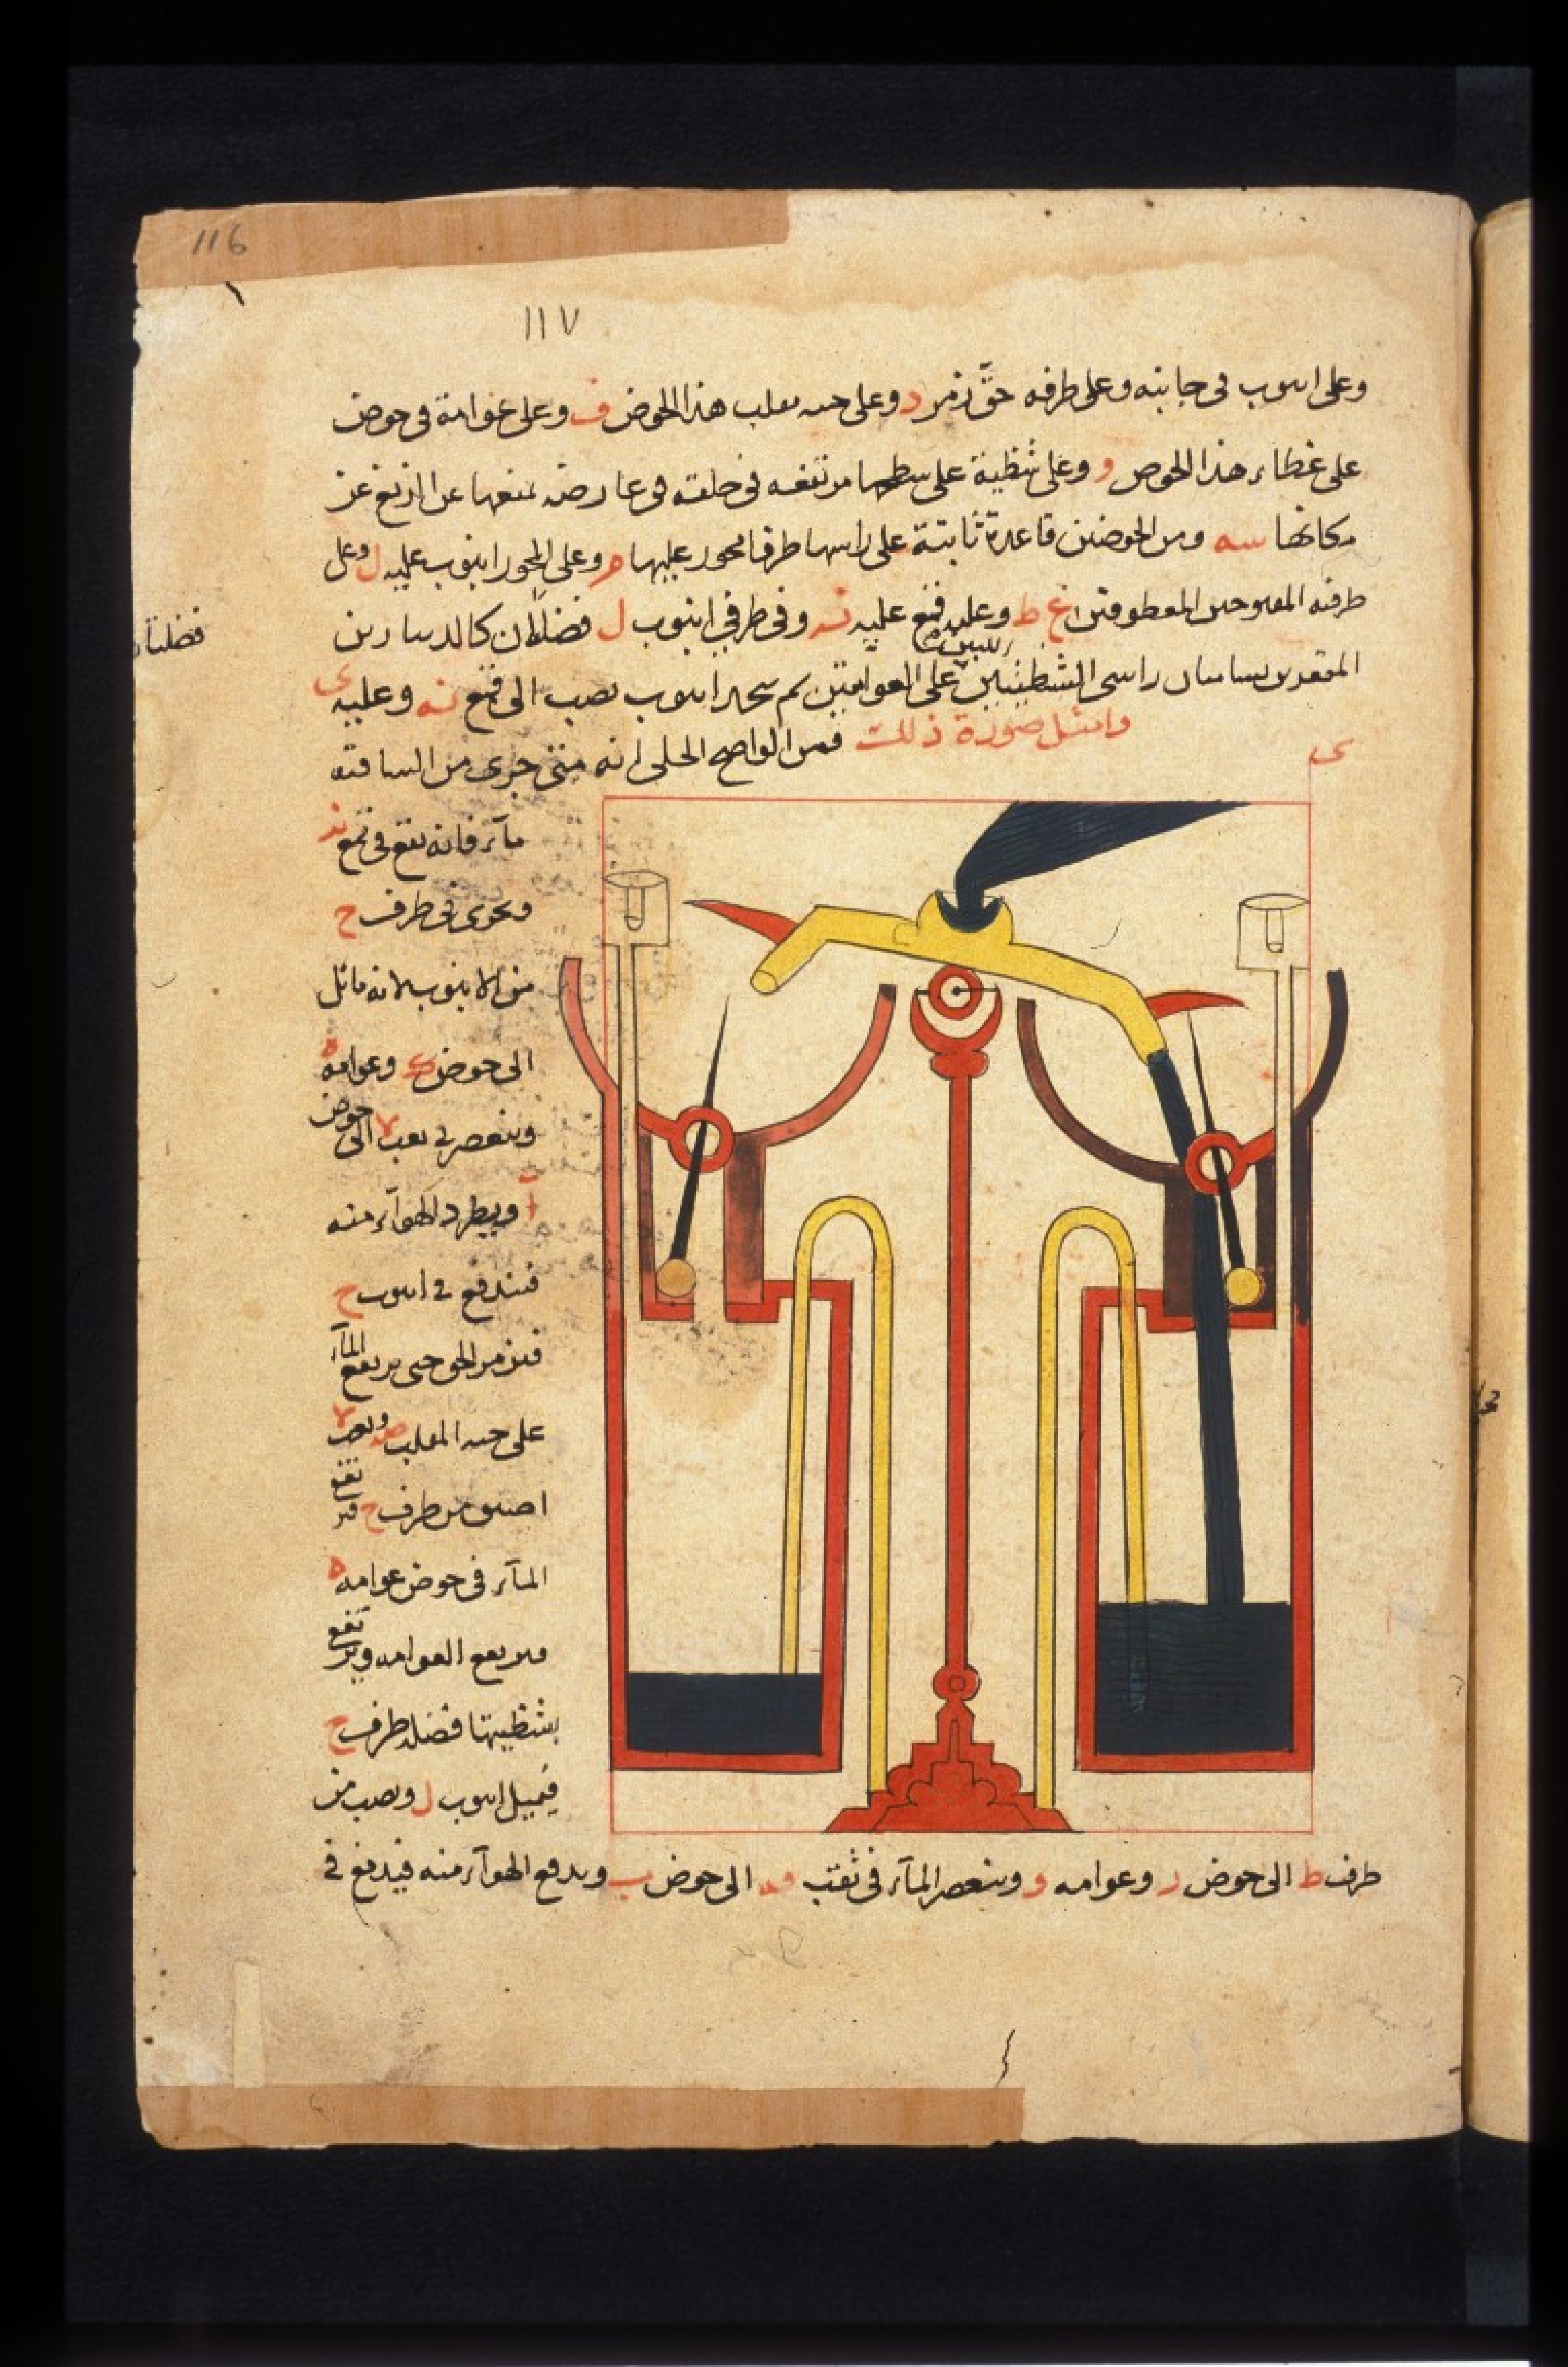 116
١١٧
وعلى انبوب فى جانبه وعلى طرفه حقّ زمر د وعلى جنبه مقلب هذا الحوض ف وعلى عوامة فى حوض
على غطاء هذا الحوض و وعلى شظية على سطحها مرتفعه فى حلقة فى عارضه تمنعها عن الزيغ عن
مكانها سه وبين الحوضين قاعدة ثابتة على راسها طرفا محور عليها م وعلى المحور انبوب عليه ل وعلى
طرفيه المفتوحين المعطوفين ح ط وعليه قمع عليه نه وفى طرفي انبوب ل فضلتان كالدينارين
فضلتان
الممتدين يماسان راسى الشظيتين اللتين على العوامتين ثم يتخذ انبوب يصب الى قمع نه وعليه ى
وامثل صورة ذلك فمن الواضح الجلى انه متى جرى من الساقيه
ى
مآء فانه يقع فى قمع نه
ويجرى فى طرف ح
من الانبوب لانه مائل
الى حوض ى وعوامه ه
وينعصر فى ثقب لا الى حوض
آ ويطرد الهوآء منه
فيندفع فى انبوب ج
فيزمر الحق حتى يرتفع المآء
على جنبه المقلب صه وثقب لا
اضيق من طرف ح فيرتفع
المآء فى حوض عوامه ه
فيرتفع العوامه ويرتفع
بشظيتها فضله طرف ح
فيميل انبوب ل ويصب من
طرف ط الى حوض ر وعوامه و وينعصر المآء فى ثقب مه الى حوض ب ويدفع الهوآء منه فيندفع فى